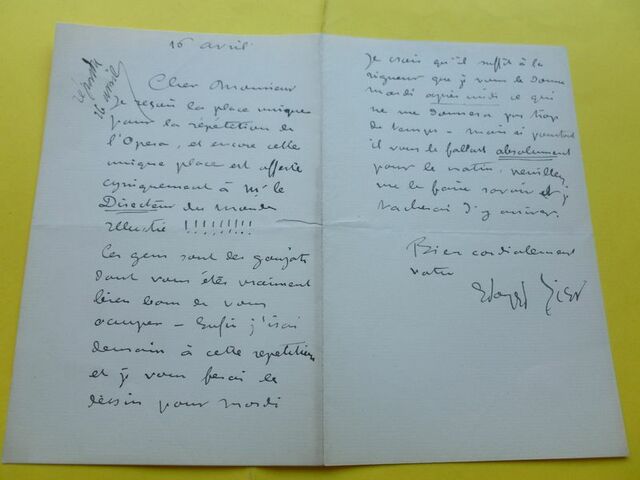 16 avril
16 avril
Cher Monsieur
Je reçois la place unique
pour la répétition de
l'Opera, et encore cette
unique place est offerte
cyniquement à Mr le
Directeur du Monde
illustré !!!!!!!!!
Ces gens sont des goujats
dont vous êtes vraiment
bien bon de vous
occuper – Enfin j'irai
demain à cette repetition
et je vous ferai le
dessin pour mardi
Je crois qu'il suffit à la
rigueur que je vous le donne
mardi après midi ce qui
ne me donnera pas trop
de temps – mais si pourtant
il vous le fallait absolument
pour le matin, veuillez
me le faire savoir et je
tacherai d'y arriver.
Bien cordialement
votre
Edouard Zier